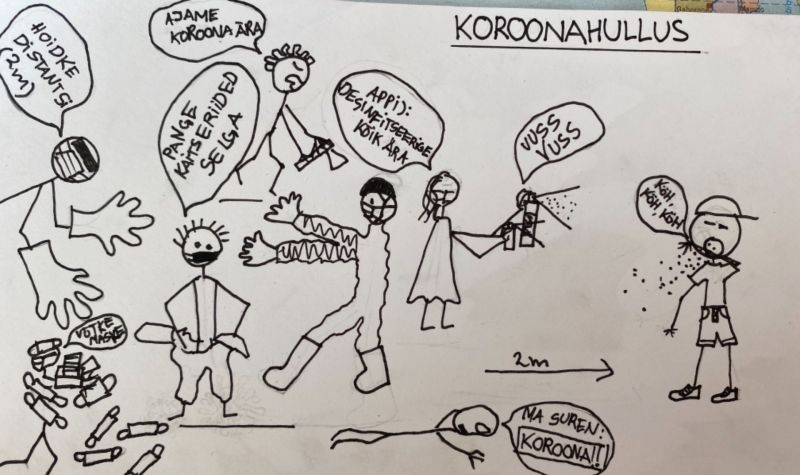 KOROONAHULLUS
HOIDKE
DISTANTSI
(2m)
AJAME
KOROONA ÄRA
PANGE
KAITSERIIDED
SELGA
APPI):
DESINFITSEERIGE
KÕIK ÄRA
VUSS
VUSS
KÖH,
KÖH, KÖH
VÕTKE
MASKE
2m
MA SUREN:
KOROONA!!